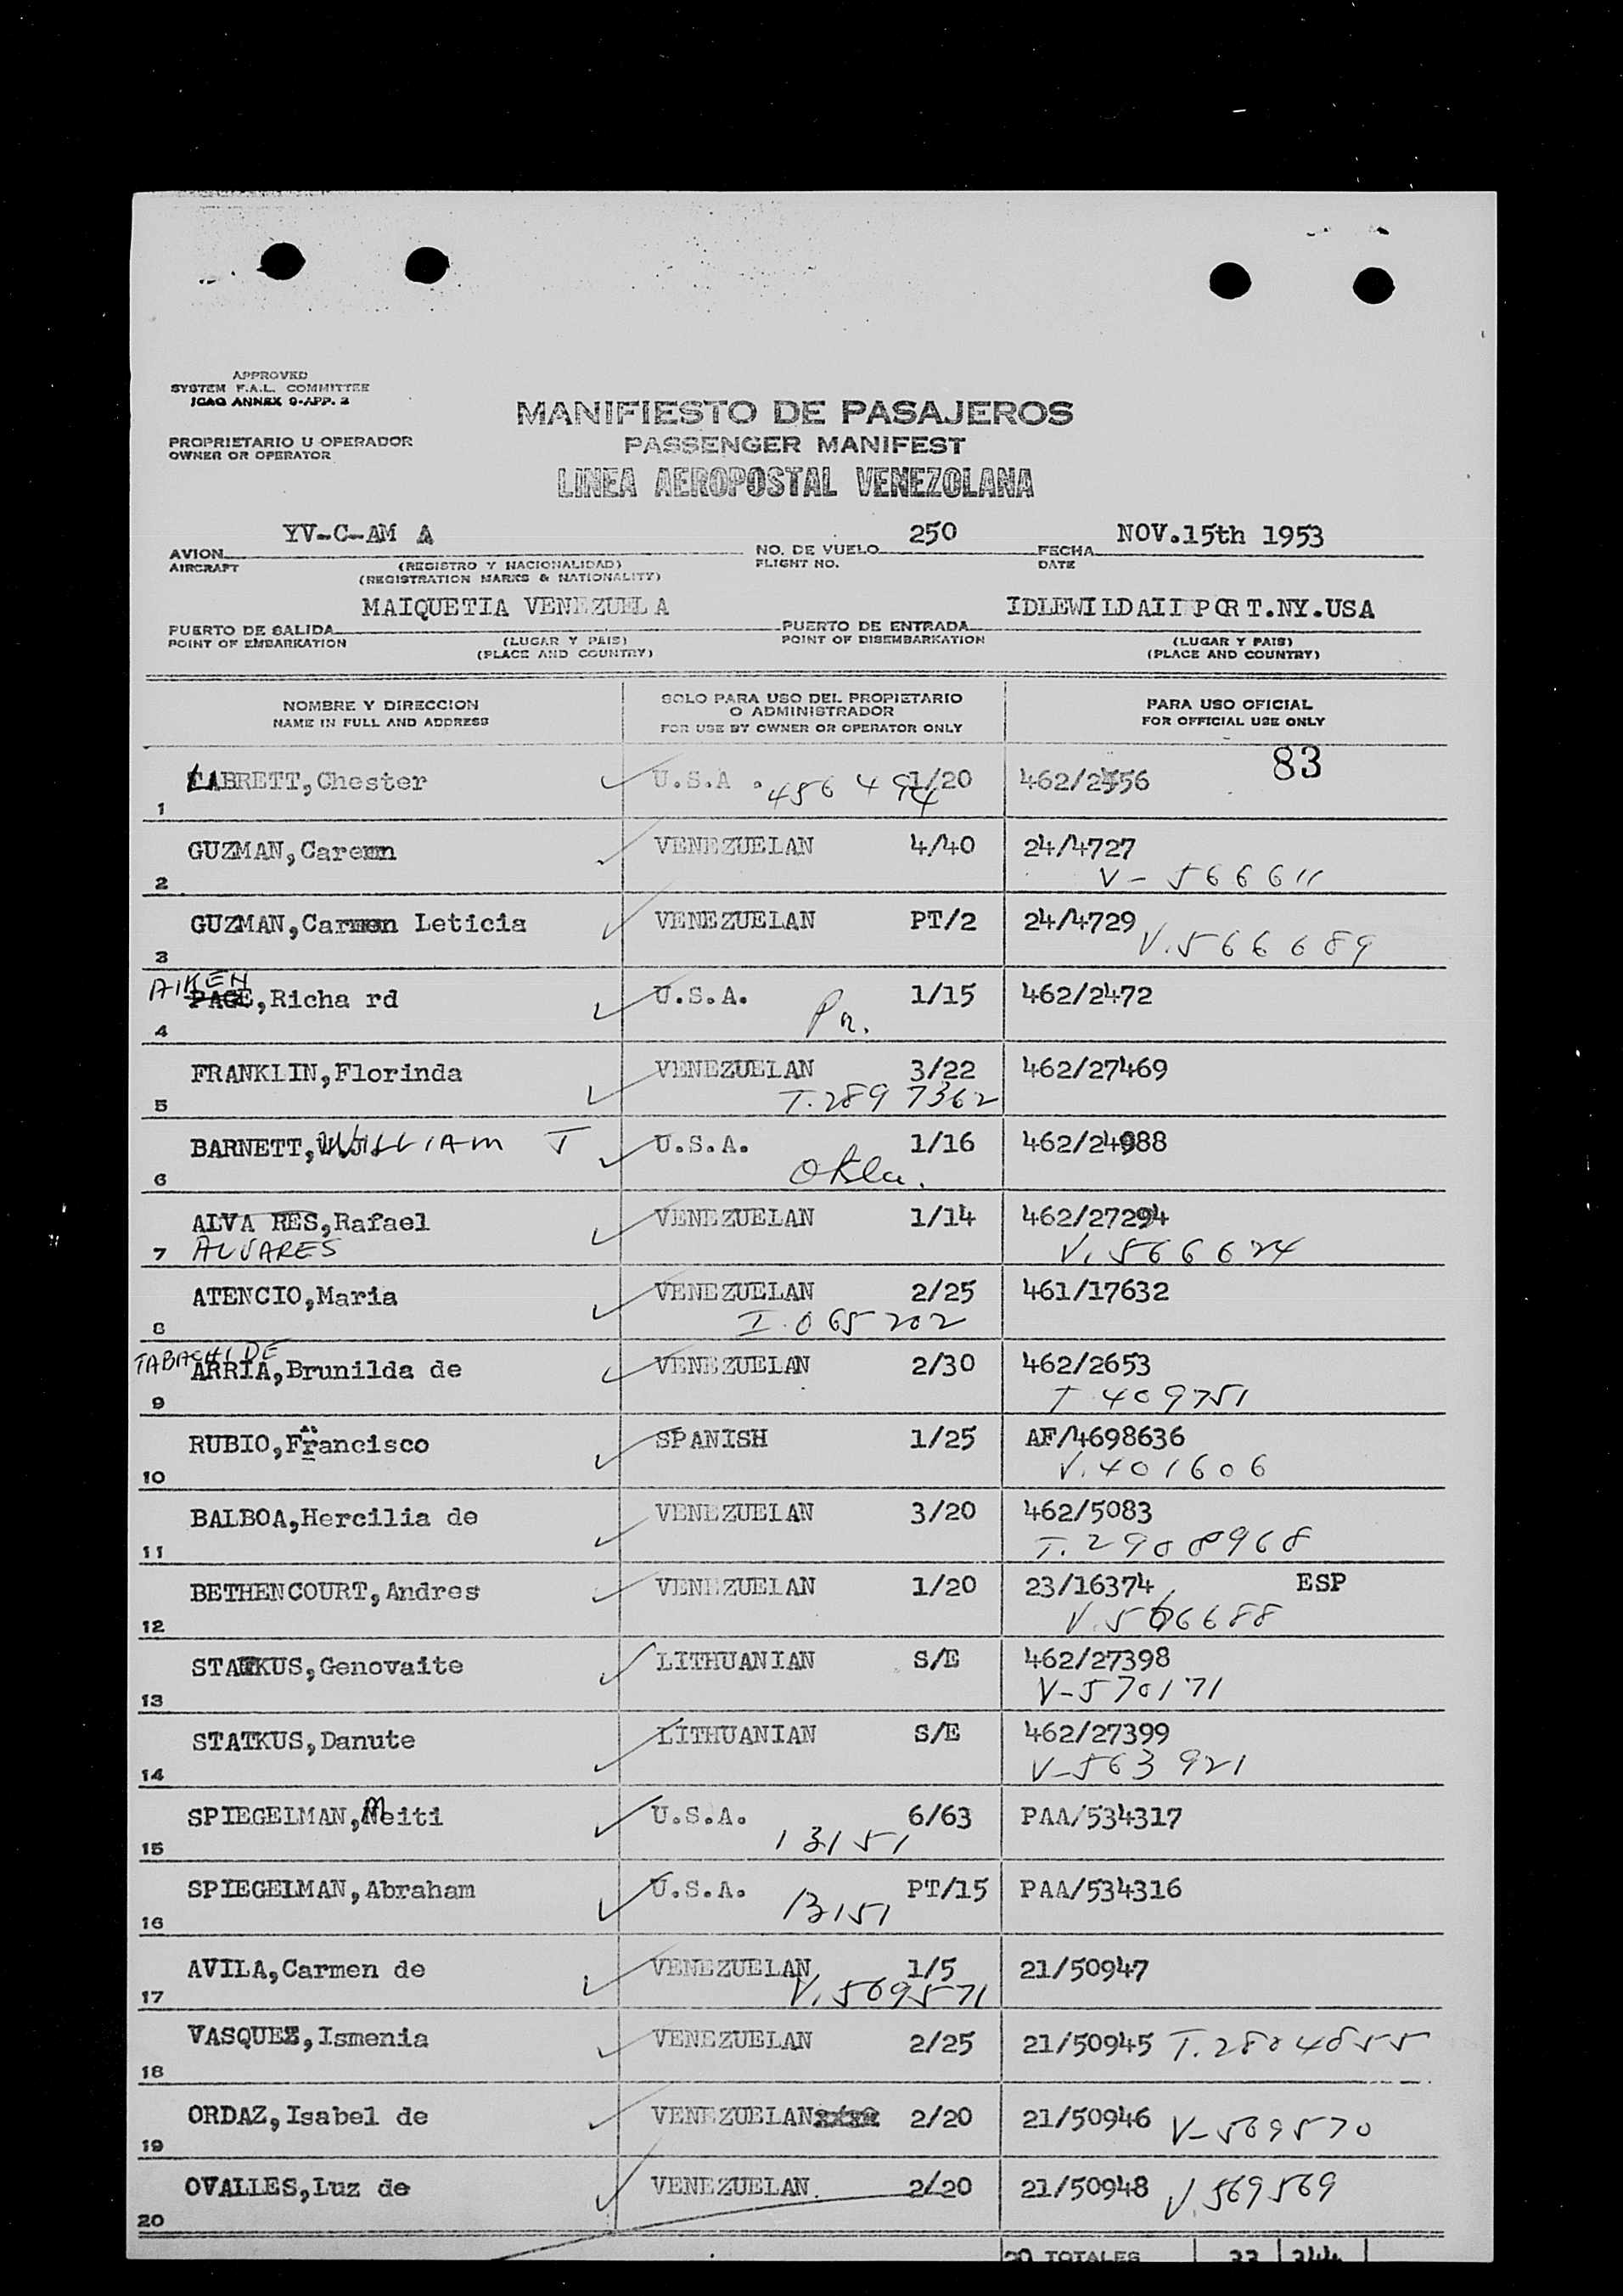 APPROVED
SYSTEM F.A.L. COMMITTEE
ICAO ANNEX 9-APP. 2
MANIFIESTO DE PASAJEROS
PROPRIETARIO U OPERADOR
OWNER OR OPERATOR
PASSENGER MANIFEST
LINEA AEROPOSTAL VENEZOLANA
YV-C-AM A 250 NOV.15th 1953
AVION NO. DE VUELO FECHA
AIRCRAFT (REGISTRO Y NACIONALIDAD) FLIGHT NO. DATE
(REGISTRATION MARKS & NATIONALITY)
MAIQUETIA VENEZUELA IDLEWILDAIRPORT.NY.USA
PUERTO DE SALIDA PUERTO DE ENTRADA
POINT OF EMBARKATION (LUGAR Y PAIS) POINT OF DISEMBARKATION (LUGAR Y PAIS)
(PLACE AND COUNTRY) (PLACE AND COUNTRY)
NOMBRE Y DIRECCION SOLO PARA USO DEL PROPIETARIO O ADMINISTRADOR PARA USO OFICIAL
NAME IN FULL AND ADDRESS FOR USE BY OWNER OR OPERATOR ONLY FOR OFFICIAL USE ONLY
83
LABRETT,Chester U.S.A. 1/20
1 456 494
GUZMAN,Caremn VENEZUELAN 4/40 24/4727
2 V- 566611
GUZMAN,Carmen Leticia VENEZUELAN PT/2 24/4729
3 V.566689
AIKEN
PAGE,Richa rd U.S.A. 1/15 462/2472
4 Pa.
FRANKLIN,Florinda VENEZUELAN 3/22 462/27469
5 T.2897362
BARNETT,WILLIAM J U.S.A. 1/16 462/24988
6 Okla.
ALVA RES,Rafael VENEZUELAN 1/14 462/27294
7 ALVARES V.566624
ATENCIO,Maria VENEZUELAN 2/25 461/17632
8 I.065202
TABACHI DE
ARRIA,Brunilda de VENEZUELAN 2/30 462/2653
9 T 409751
RUBIO,Francisco SPANISH 1/25 AF/4698636
10 V.401606
BALBOA,Hercilia de VENEZUELAN 3/20 462/5083
11 T.2908968
BETHENCOURT,Andres VENEZUELAN 1/20 23/16374 ESP
12 V.566688
STATKUS,Genovaite LITHUANIAN S/E 462/27398
13 V-570171
STATKUS,Danute LITHUANIAN S/E 462/27399
14 V-563921
SPIEGELMAN,Meiti U.S.A. 6/63 PAA/534317
15 13151
SPIEGELMAN,Abraham U.S.A. PT/15 PAA/534316
16 13151
AVILA,Carmen de VENEZUELAN 1/5 21/50947
17 V.569571
VASQUEZ,Ismenia VENEZUELAN 2/25 21/50945 T.2804855
18
ORDAZ,Isabel de VENEZUELAN 2/20 21/50946 V-569570
19
OVALLES,Luz de VENEZUELAN 2/20 21/50948 V.569569
20
20 TOTALES 33 344